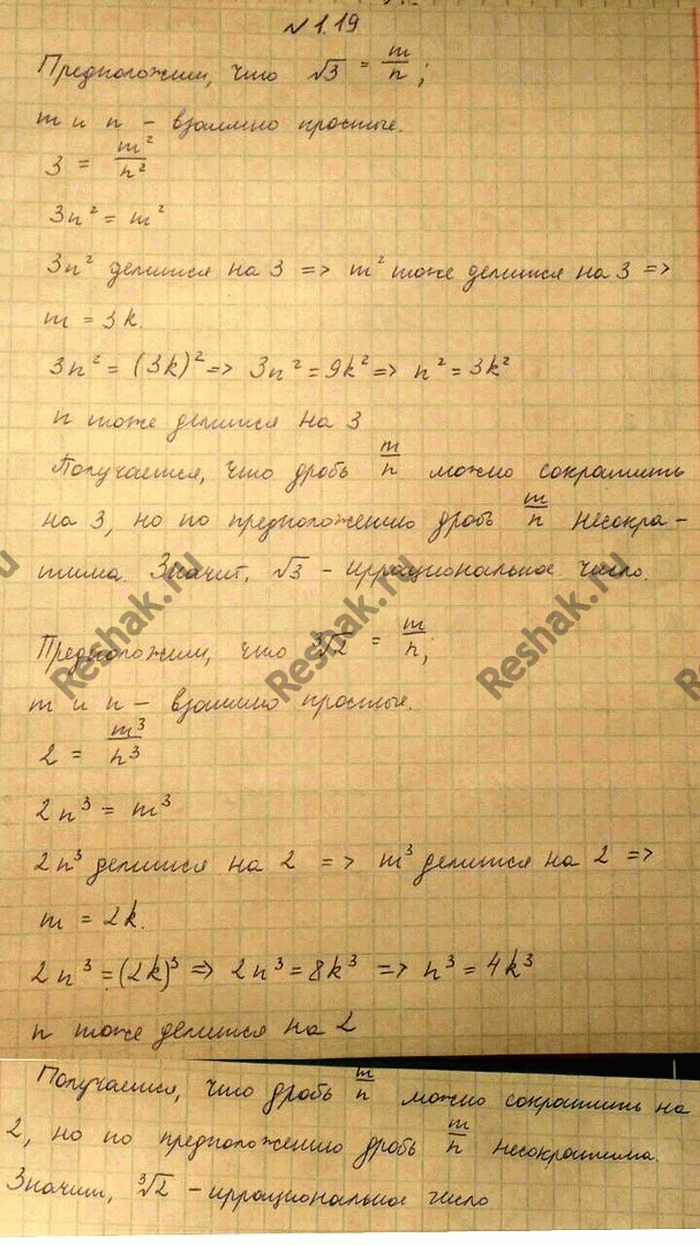 № 1.19
Предположим, что √3 = m/n;
m и n – взаимно простые.
3 = m²/n²
3n² = m²
3n² делится на 3 => m² тоже делится на 3 =>
m = 3k.
3n² = (3k)² => 3n² = 9k² => n² = 3k²
n тоже делится на 3
Получается, что дробь m/n можно сократить
на 3, но по предположению дробь m/n несокра-
тима. Значит, √3 – иррациональное число.
Reshak.ru Reshak.ru Reshak.ru
Предположим, что ∛2 = m/n;
m и n – взаимно простые.
2 = m³/n³
2n³ = m³
2n³ делится на 2 => m³ делится на 2 =>
m = 2k.
2n³ = (2k)³ => 2n³ = 8k³ => n³ = 4k³
n тоже делится на 2
Получается, что дробь m/n можно сократить на
2, но по предположению дробь m/n несократима.
Значит, ∛2 – иррациональное число